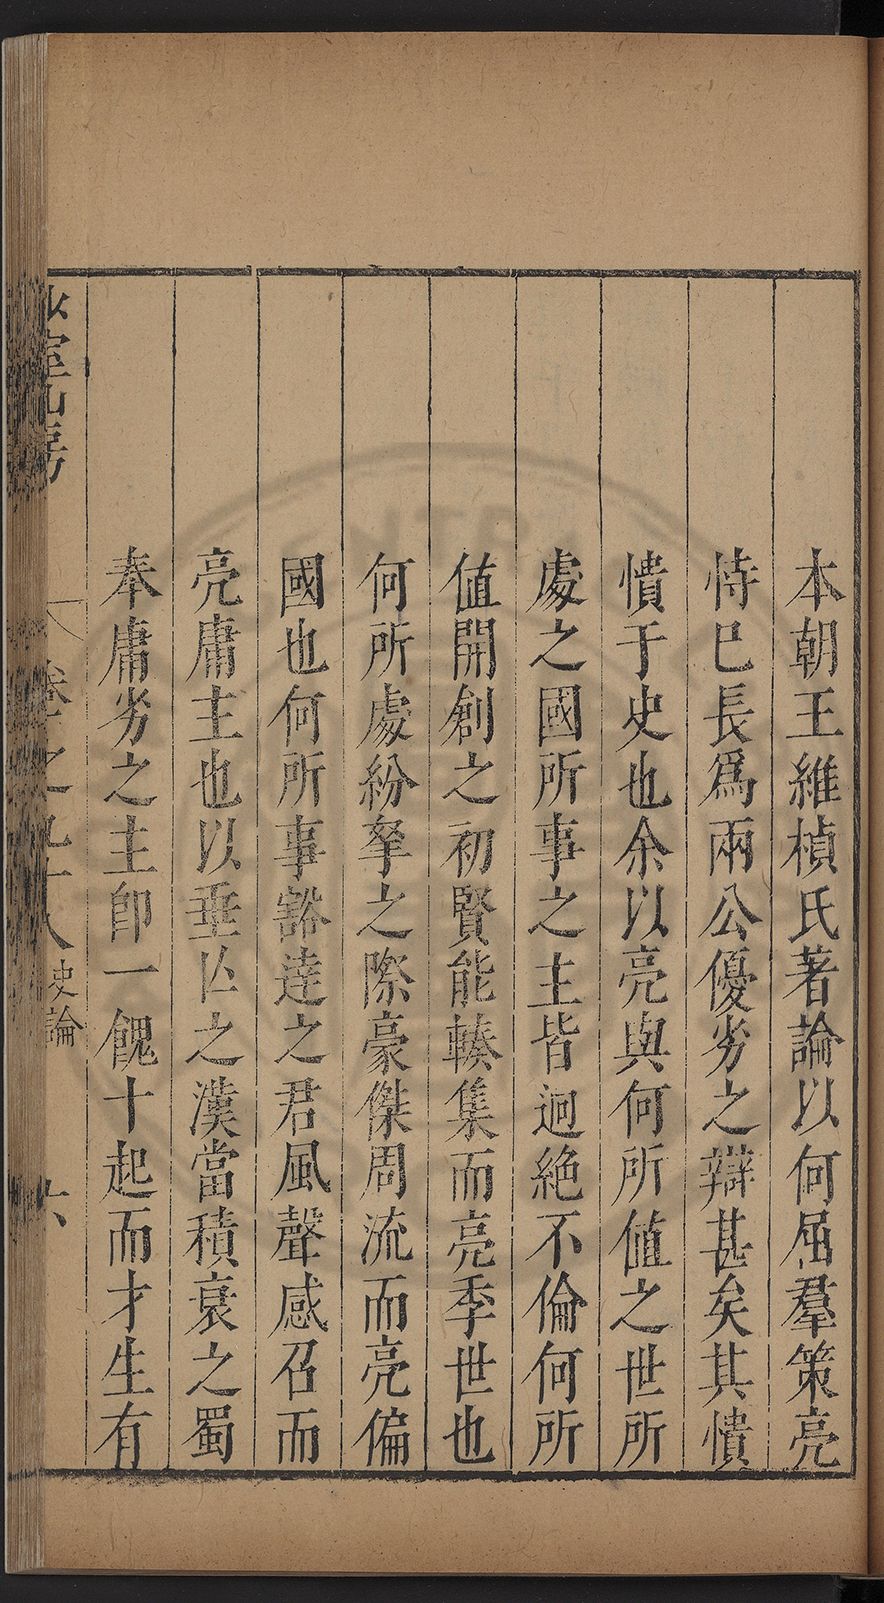 本朝王維楨氏著論以何屈羣策亮
恃巳長爲兩公優劣之辯甚矣其憒
憒于史也余以亮與何所值之世所
處之國所事之主皆逈絶不倫何所
值開創之初賢能輳集而亮季世也
何所處紛拏之際豪傑周流而亮偏
國也何所事豁逹之君風聲感召而
亮庸主也以垂亾之漢當積衰之蜀
奉庸劣之主卽一餽十起而才生有
室山房
卷之九十八 史論 六